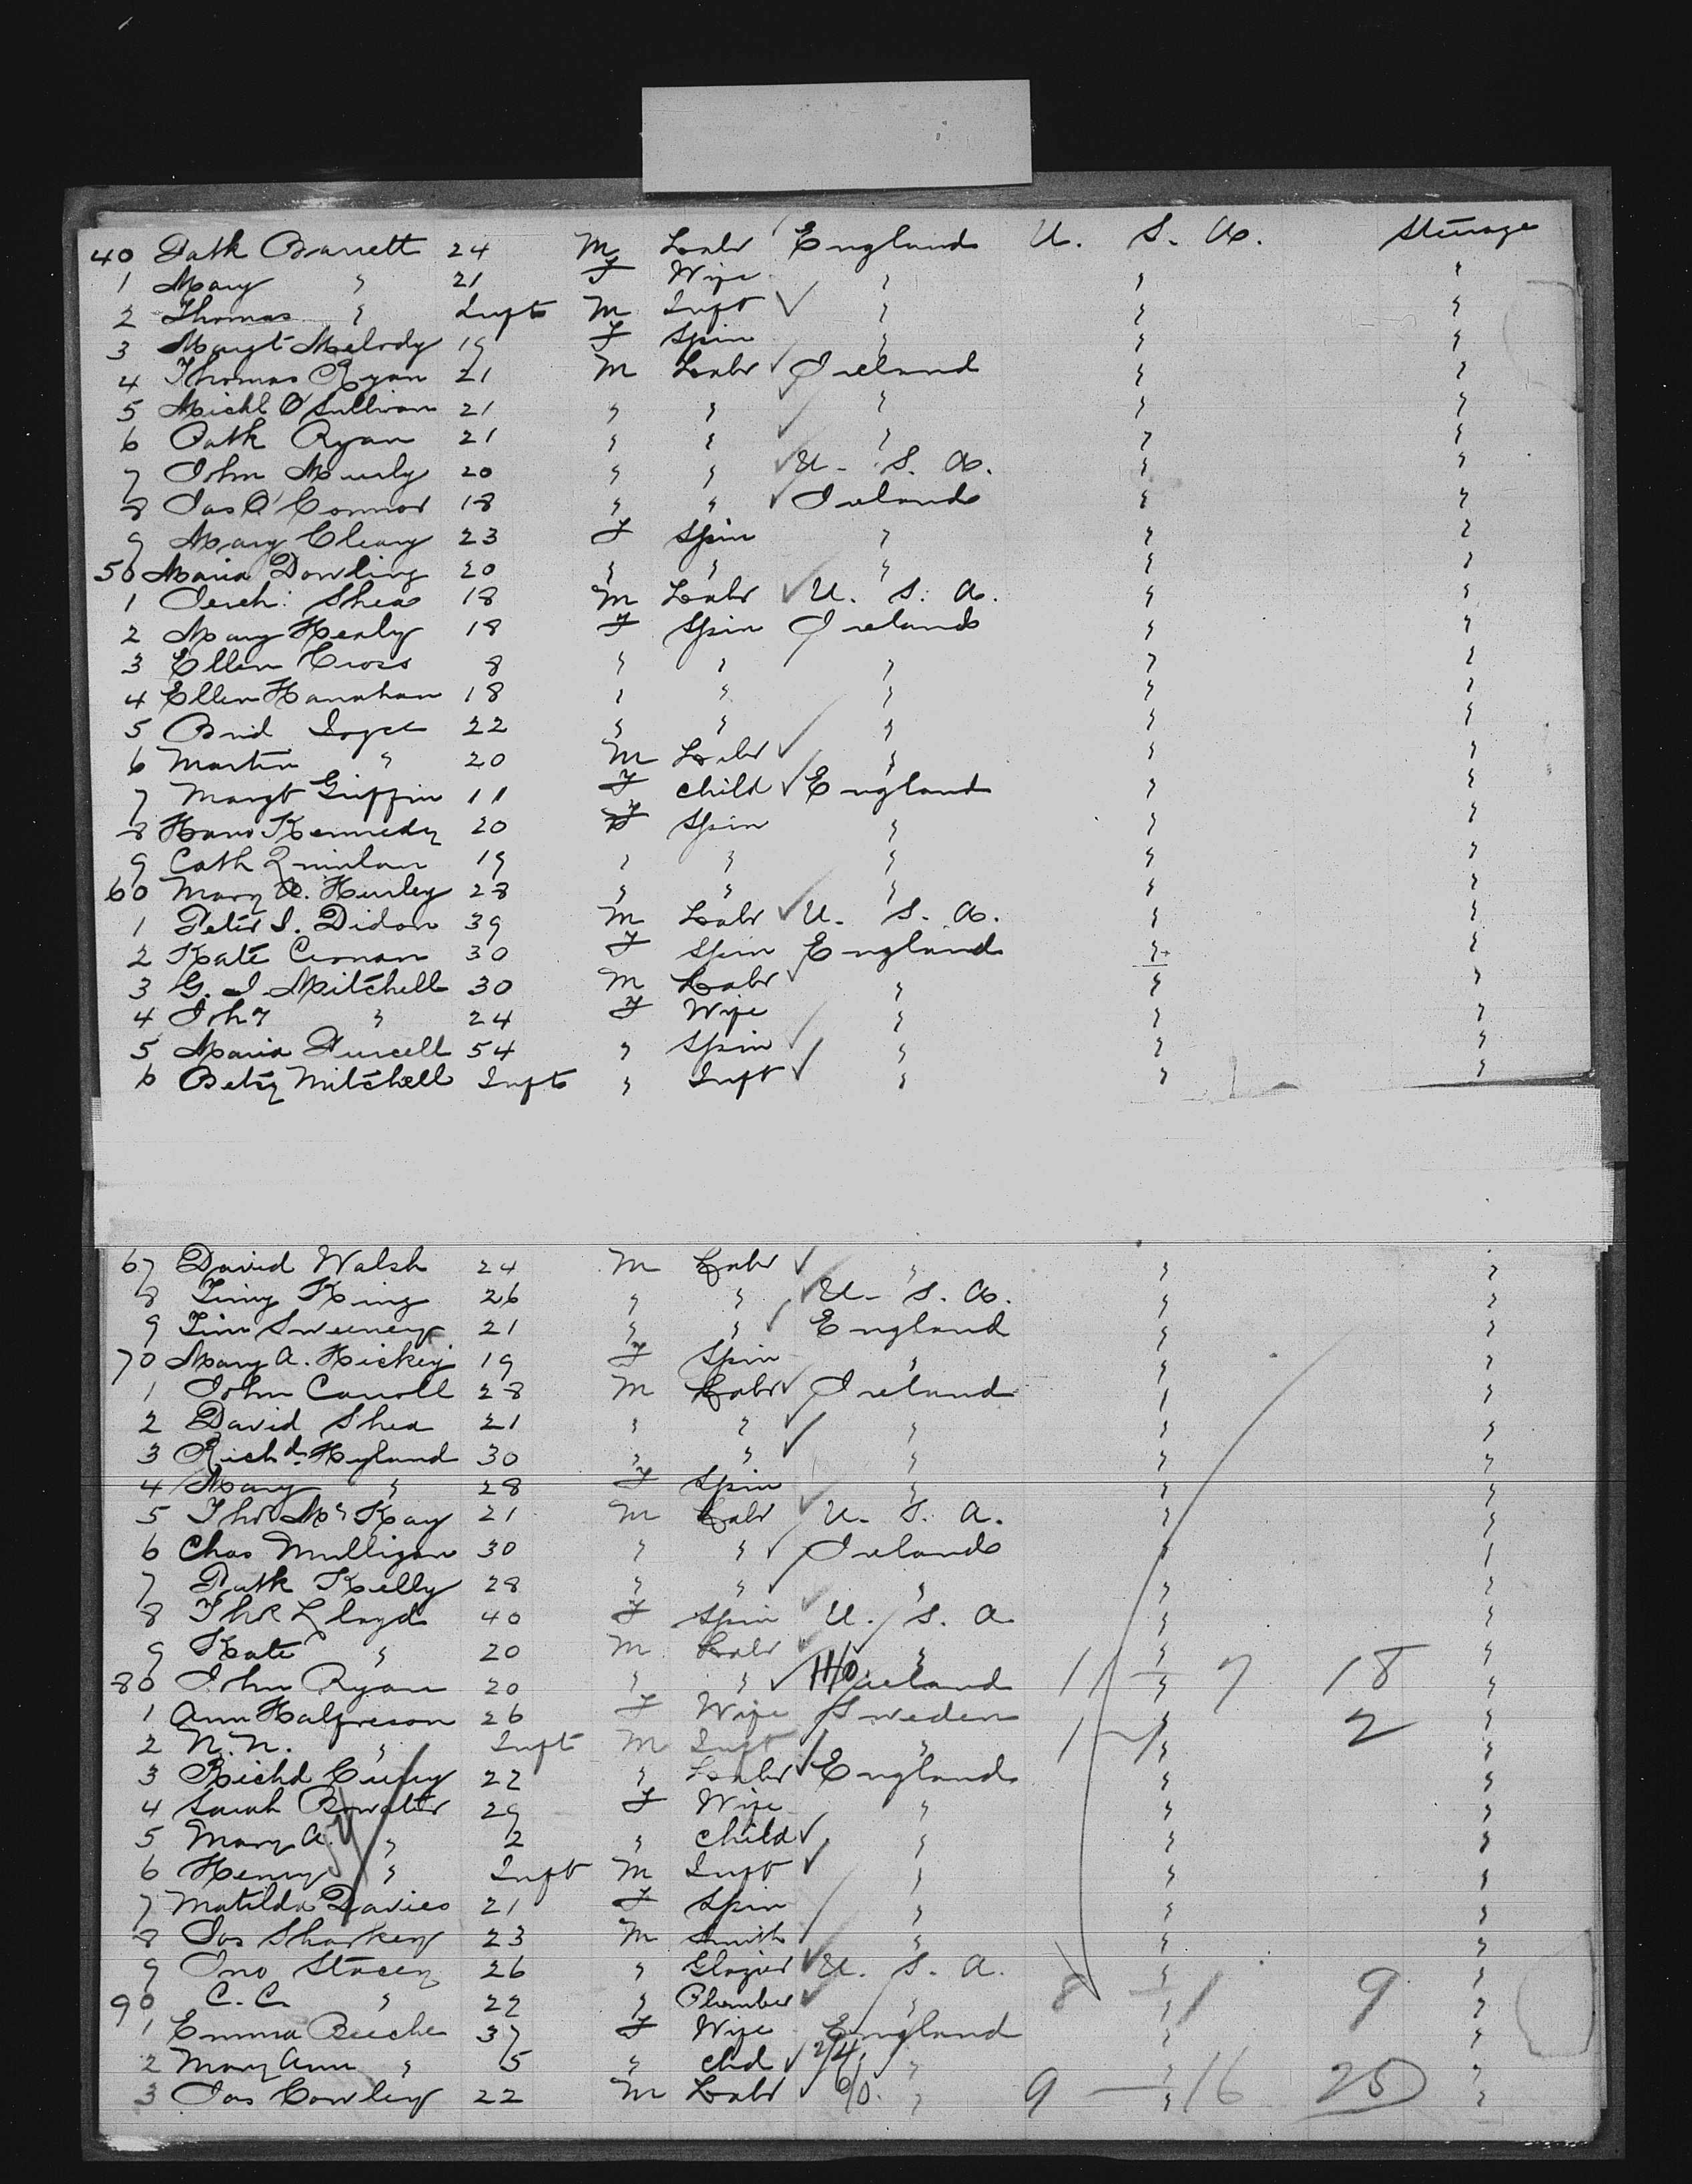 40 Patk Barrett 24 M Labr England U. S. A. Steerage
1 Mary " 21 F Wife " " "
2 Thomas " Inft M Inft " " "
3 Margt Melody 19 F Spin " " "
4 Thomas Ryan 21 M Labr Ireland " "
5 Michl O'Sullivan 21 " " " " "
6 Patk Ryan 21 " " " " "
7 John 20 " " U. S. A. " "
8 Jas O'Connor 18 " " Ireland " "
9 Mary Cleary 23 F Spin " " "
50 Maria Dowling 20 " " " " "
1 Shea 18 M Labr U. S. A. " "
2 Mary Healy 18 F Spin Ireland " "
3 Ellen Cross 8 " " " " "
4 Ellen Hanahan 18 " " " " "
5 Brid 22 " " " " "
6 Martin " 20 M Labr " " "
7 Margt Griffin 11 F Child England " "
8 Kennedy 20 F Spin " " "
9 Cath Quinlan 19 " " " " "
60 Mary A. Hurley 28 " " " " "
1 Peter J. Didon 39 M Labr U. S. A. " "
2 Kate 30 F Spin England " "
3 G. J Mitchell 30 M Labr " " "
4 " 24 F Wife " " "
5 Maria Purcell 54 " Spin " " "
6 Betsy Mitchell Inft " Inft " " "
67 David Walsh 24 M Labr " " "
8 Timy King 26 " " U. S. A. " "
9 Tim Sweeney 21 " " England " "
70 Mary A. Hickey 19 F Spin " " "
1 John Carroll 28 M Labr Ireland " "
2 David Shea 21 " " " " "
3 Richd. Hyland 30 " " " " "
4 Mary " 28 F Spin " " "
5 Thos McKay 21 M Labr U. S. A. " "
6 Chas Mulligan 30 " " Ireland " "
7 Patk Kelly 28 " " " " "
8 Lloyd 40 F Spin U. S. A " "
9 Kate " 20 M Labr " " "
80 John Ryan 20 " " Ireland 11 — 7 18 "
1 Ann Halfreson 26 F Wife Sweden " 2 "
2 N. N. " Inft M Inft " 1 — 1 " "
3 Richd 22 " Labr England " "
4 Sarah Bowater 29 F Wife " " "
5 Mary A. " 2 " Child " " "
6 Henry " Inft M Inft " " "
7 Matilda Davies 21 F Spin " " "
8 Jas Sharkey 23 M Smith " " "
9 Jno Stacey 26 " Glazier U. S. A. " "
90 C. C. " 22 " Plumber " 8 — 1 9 "
1 Emma Beeche 37 F Wife England " "
2 Mary Ann " 5 " Chd " " "
3 Jas Cowley 22 M Labr " 9 — 16 25 "